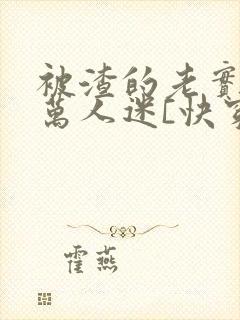 被渣的老實
萬人迷[快穿
霍燕